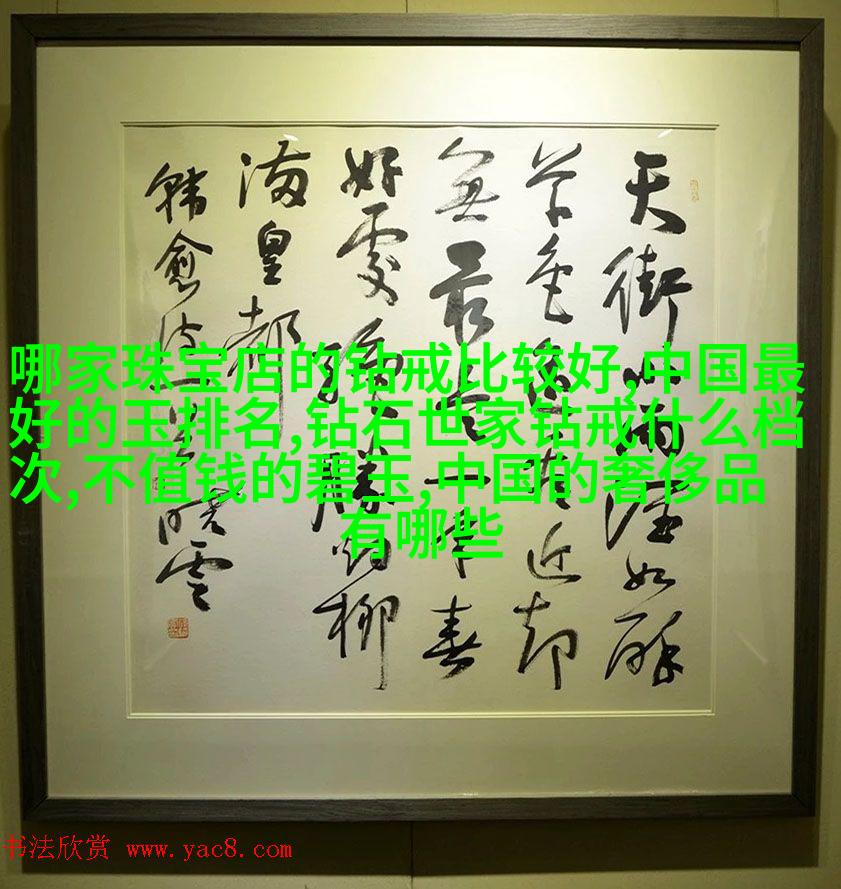 哪家珠宝店的钻戒比较好,中国最
好的玉排名,钻石世家钻戒什么档
次,不值钱的碧玉,中国的奢侈品
有哪些
天街小雨潤如酥
草色遥看近却
無最是一年春
好處絕勝烟柳
滿皇都
韓愈詩一首 曉雲
书法欣赏 www.yac8.com